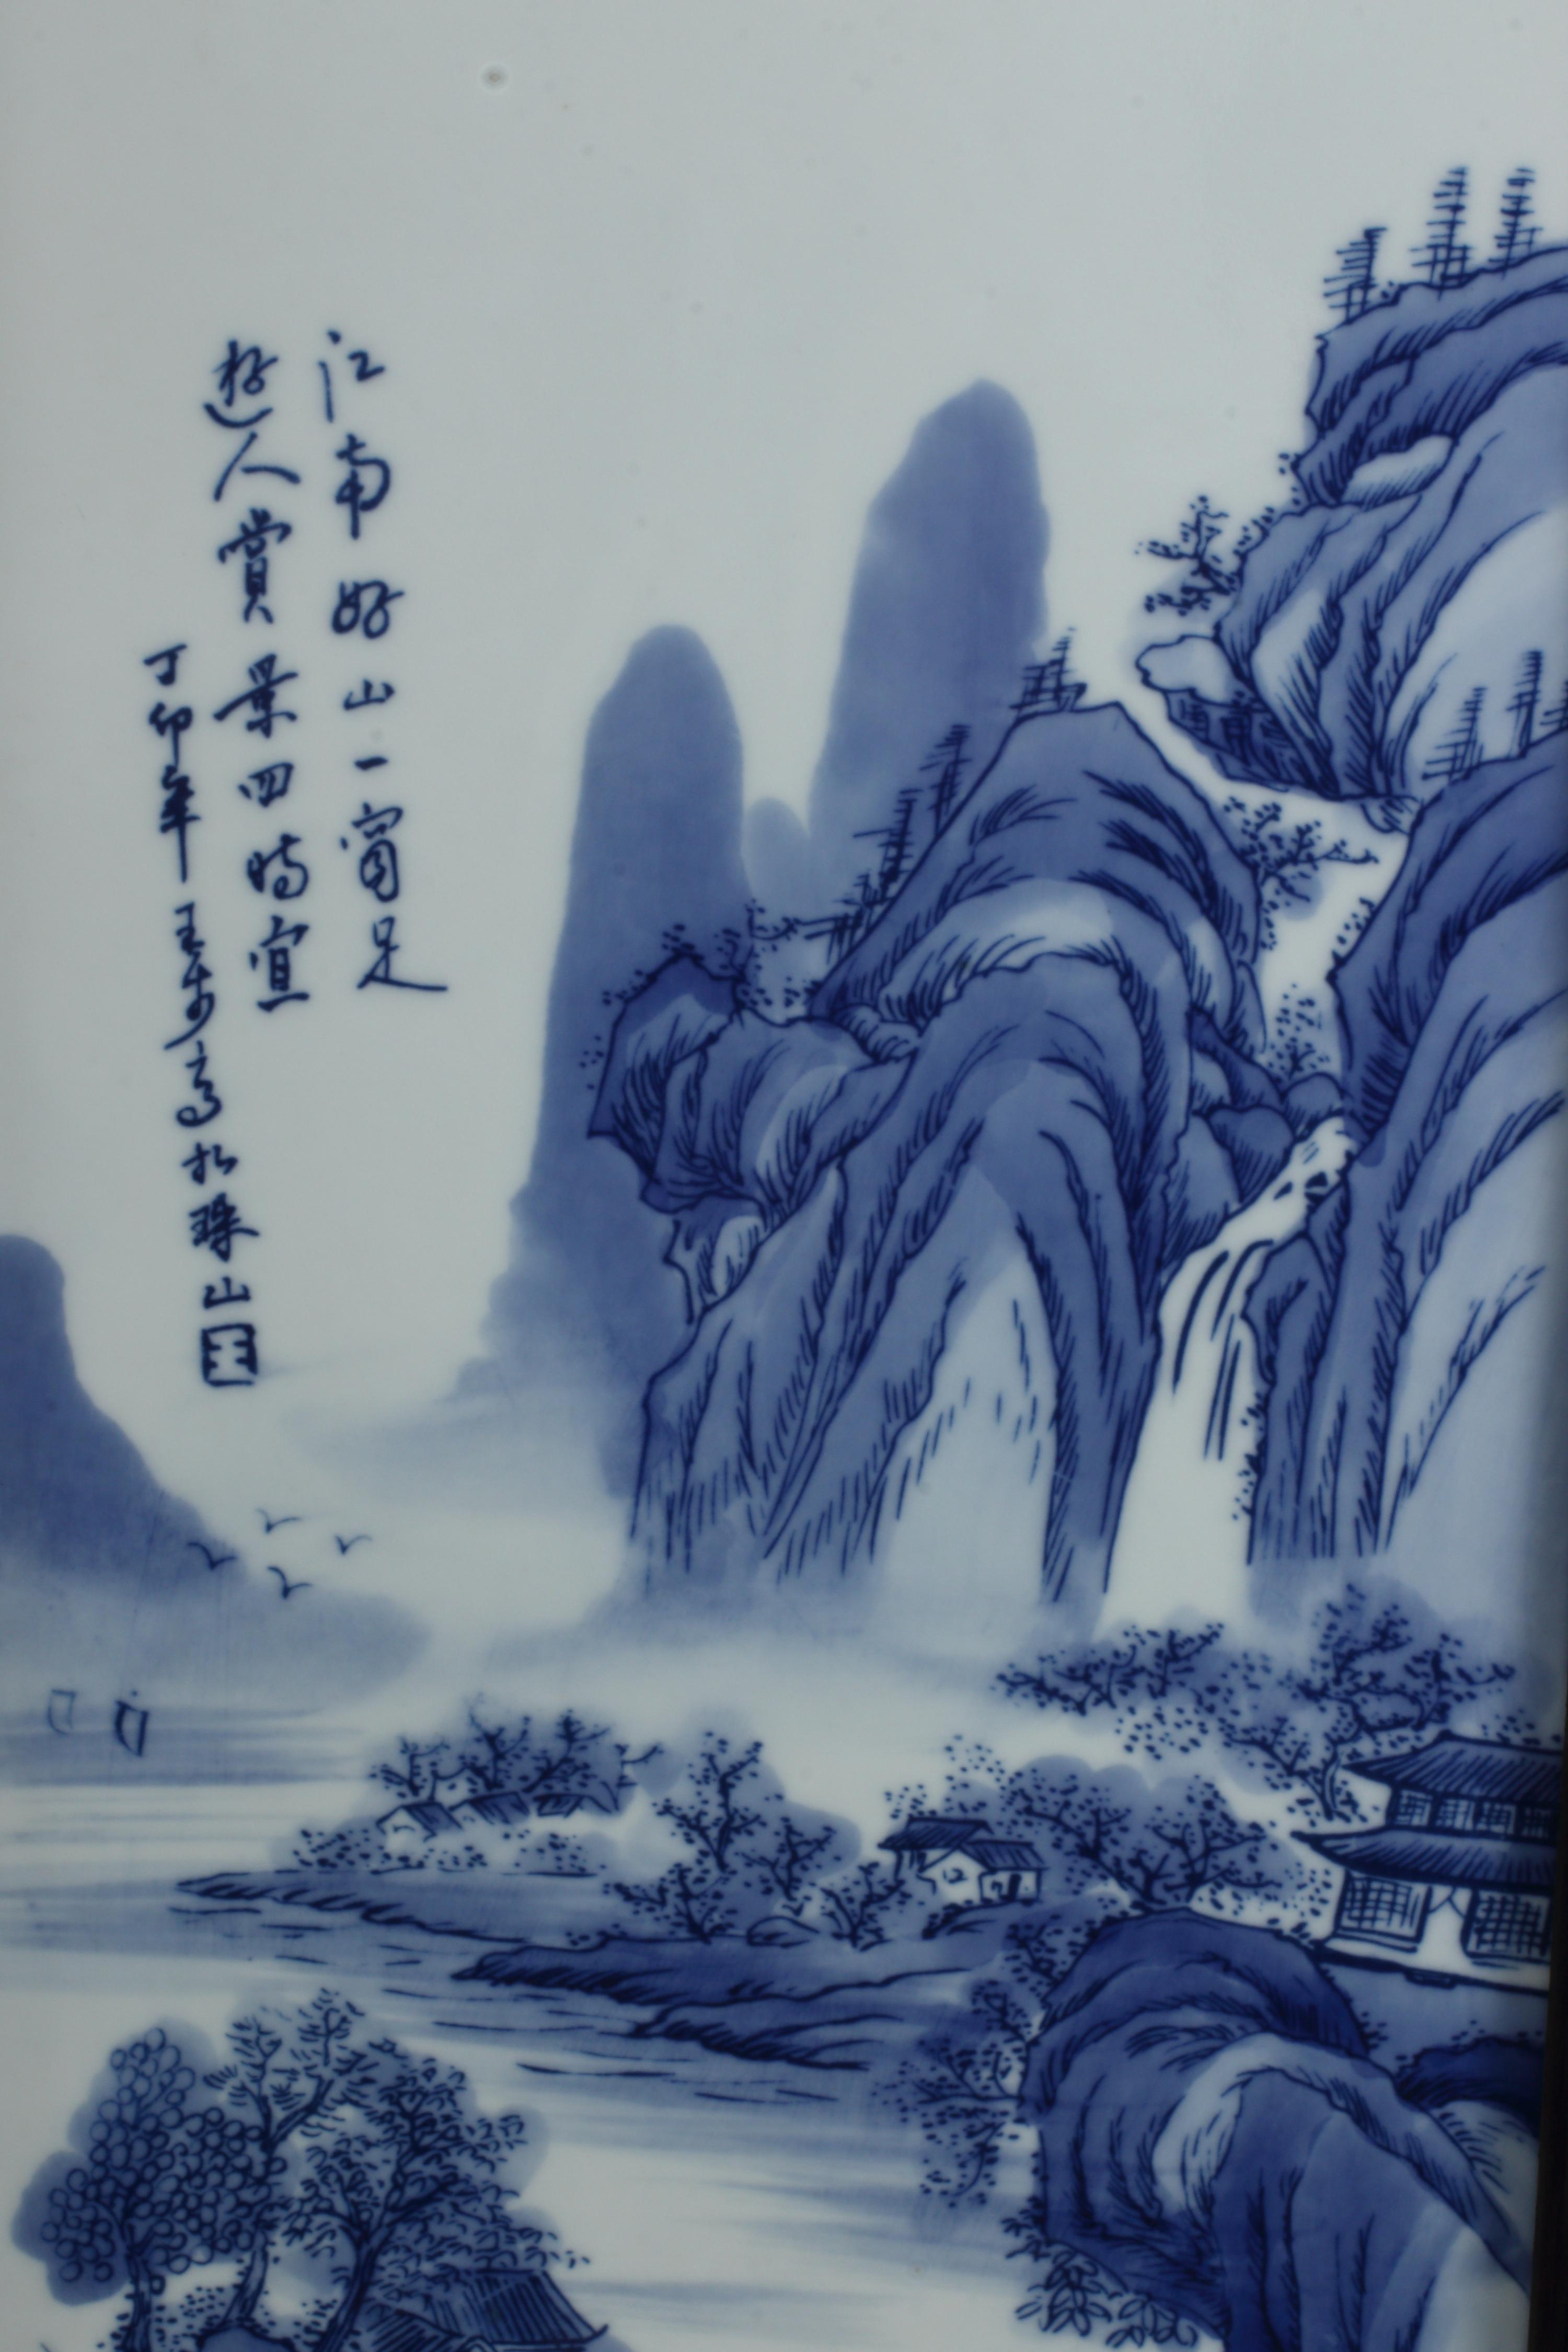 江南好山一窗足
遊人賞景四時宜
丁卯年王步寫於珠山
王